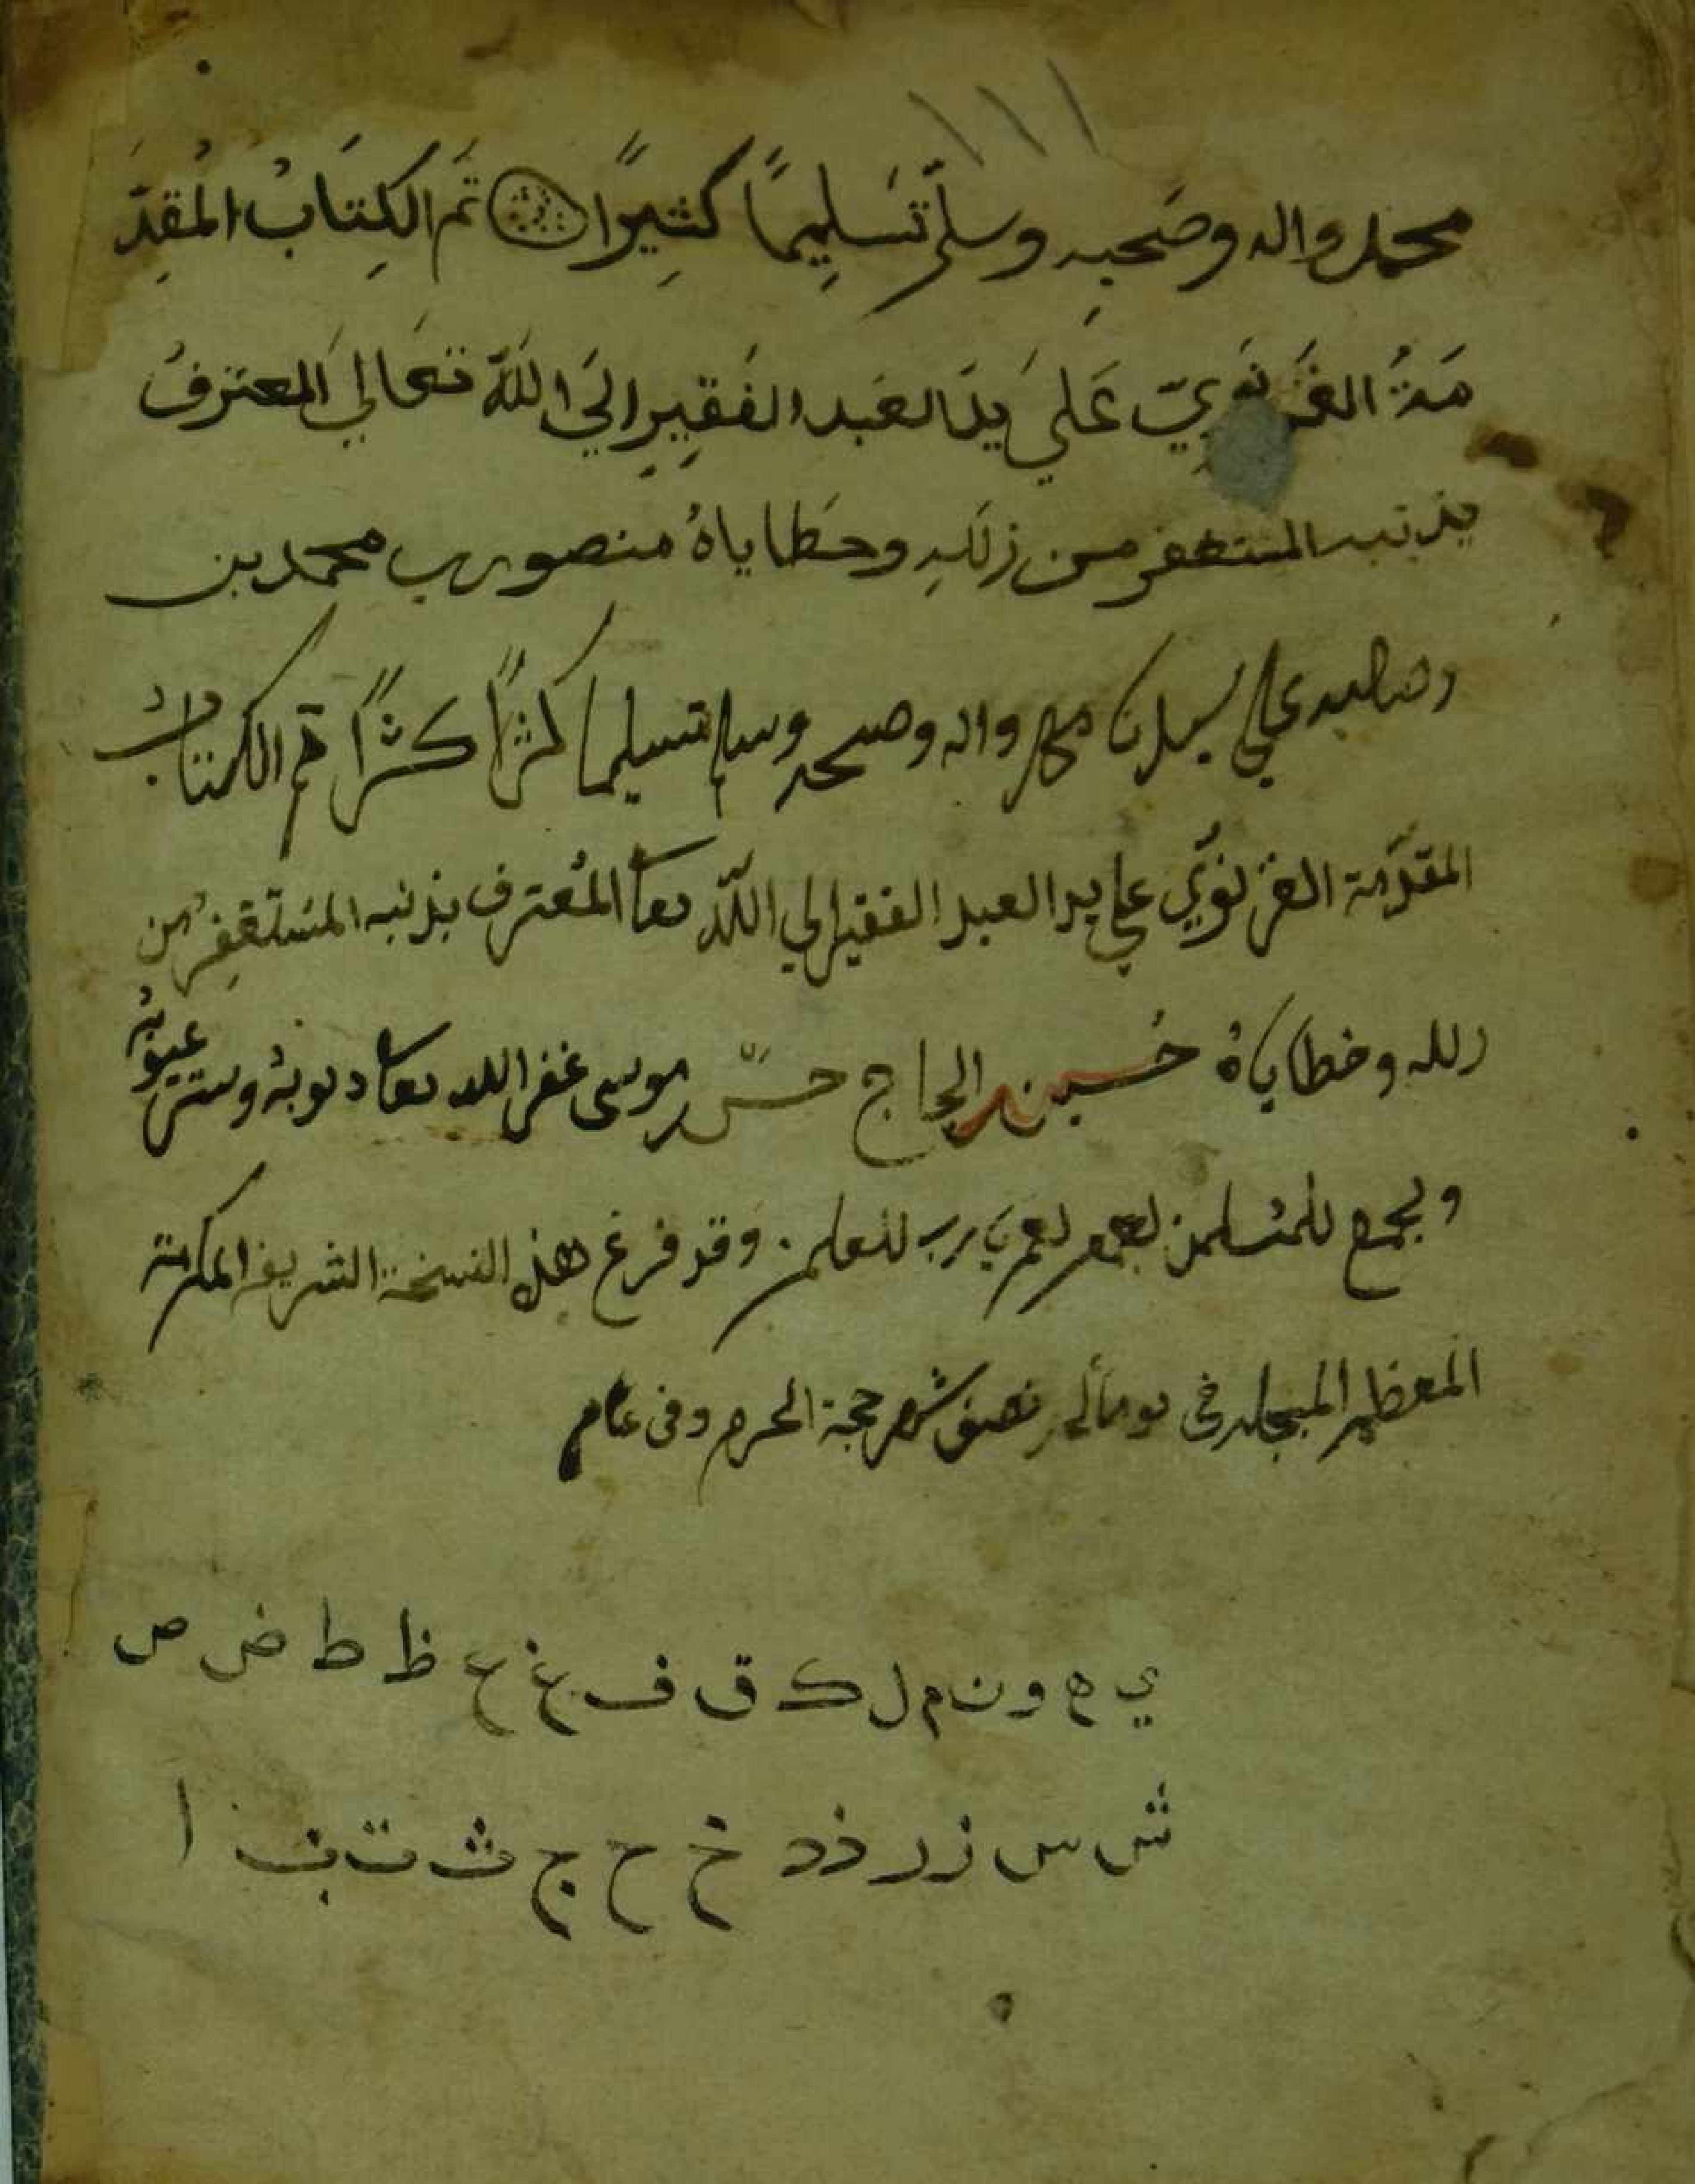 ١١١
محمد واله وصَحبِه وسلّم تَسْلِيمًا كَثِيرًا تَم الكِتَابُ المُقدِّ
مَةُ الغَزنَوِيّ عَلي يَد العَبد الفَقِيرِ الَي اللَّه تعَالي المعترفُ
بذنبه المستغفر من زللِهِ وخَطاياهُ منصور بن محمد بن
علي سيدنا محمد واله وصحبه وسلم تسليما كثرًا كثرًا تم الكتاب
المقدّمة الغزنوّي علي يد العبد الفقير الي اللّه تعا المُعترف بذنبه المستغفِر من
زلله وخطاياهُ حُسين بن الحاج حسن موسى غفر الله تعا دنوبهُ وستر عيوبهُ
ولجمع للمُسلمن يا رب للعلمن . وقد فرغ هذه النسخة الشريفة المكرمة
المعظم المبجله في نصف شهر حجة الحرم وفى عام
ي ه و ن م ل ك ق ف غ ع ظ ط ض ص
ش س ز ر ذ د خ ح ج ث ت ب ا